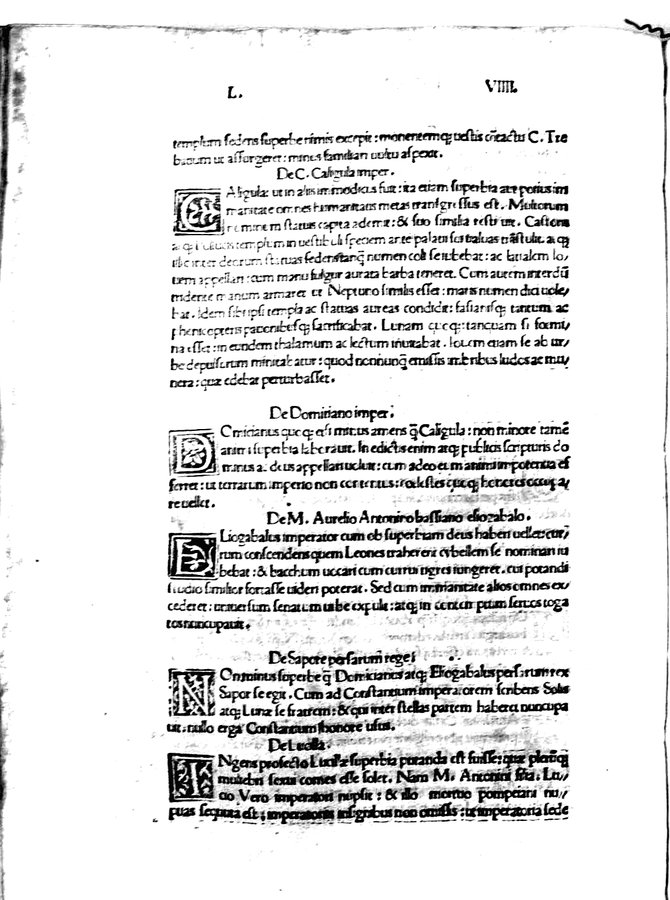 L. VIIII.
templum sedens superbe nimis excepit: monentemq; uestis cõtactu C. Tre
batium ut assurgeret: minus familiari uultu aspexit.
De C. Caligula imper.
CAligula: ut in aliis immodicus fuit: ita etiam superbia atq; potius im
manitate omnes humanitatis metas transgressus est. Multorum
numinum statuis capita ademit: & suo similia restituit. Castoris
atq; Pollucis templum in uestibuli speciem ante palatii sui ualuas trãstulit. atq;
ubi inter deorum statuas sedens tanq̃ numen coli se iubebat: ac latialem Io/
uem appellari: cum manu fulgur aurata barba teneret. Cum autem interdũ
tridente manum armaret ut Neptuno similis esset: maris numen dici uole/
bat. Idem sibi ipsi templa ac statuas aureas condidit: fasianisq; tantum ac
phenicopteris pauonibusq; sacrificabat. Lunam queq: tanquam si formi/
na esset: in eundem thalamum ac lectum inuitabat. Iouem etiam se ab ur/
be depulsurum minitabatur: quod nonnunq̃ emissis imbribus ludos ac mu/
nera: quæ edebat perturbasset.
De Domitiano imper:
DOmitianus queq; etsi minus amens q̃ Caligula: non minore tamẽ
animi superbia laborauit. In edictis enim atq; publicis scripturis do
minus ac deus appellari uoluit: cum adeo eum animi impotentia ef
ferret: ut terrarum imperio non contentus: cœlestes queq; honores occupa/
re uellet.
De M. Aurelio Antonino bassiano eliogabalo.
ELiogabalus imperator cum ob superbiam deus haberi uellet: cur/
rum conscendens quem Leones traherent cybellem se nominari iu
bebat: & bacchum uocari cum currui tigres iungeret. cui potandi
studio similior fortasse uideri poterat. Sed cum immanitate alios omnes ex/
cederet: uniuersum senatum urbe expulit: atq; in contemptum seruos toga
tos nuncupauit.
De Sapore persarum rege:
NOn minus superbe q̃ Domitianus atq; Eliogabalus persarum rex
Sapor se egit. Cum ad Constantium imperatorem scribens Solis
atq; Lunæ se fratrem: & qui inter stellas partem haberet nuncupa
uit. nullo erga Constantium honore usus.
De Lucilla.
INgens profecto Lucillæ superbia putanda est fuisse: quæ plerũq;
muliebri sexui comes esse solet. Nam M. Antonini filia. Lu/
cio Vero imperatori nupsit: & illo mortuo pompeiani nu/
ptias sequuta est: imperatoriis insignibus non omissis: ut imperatoria sede